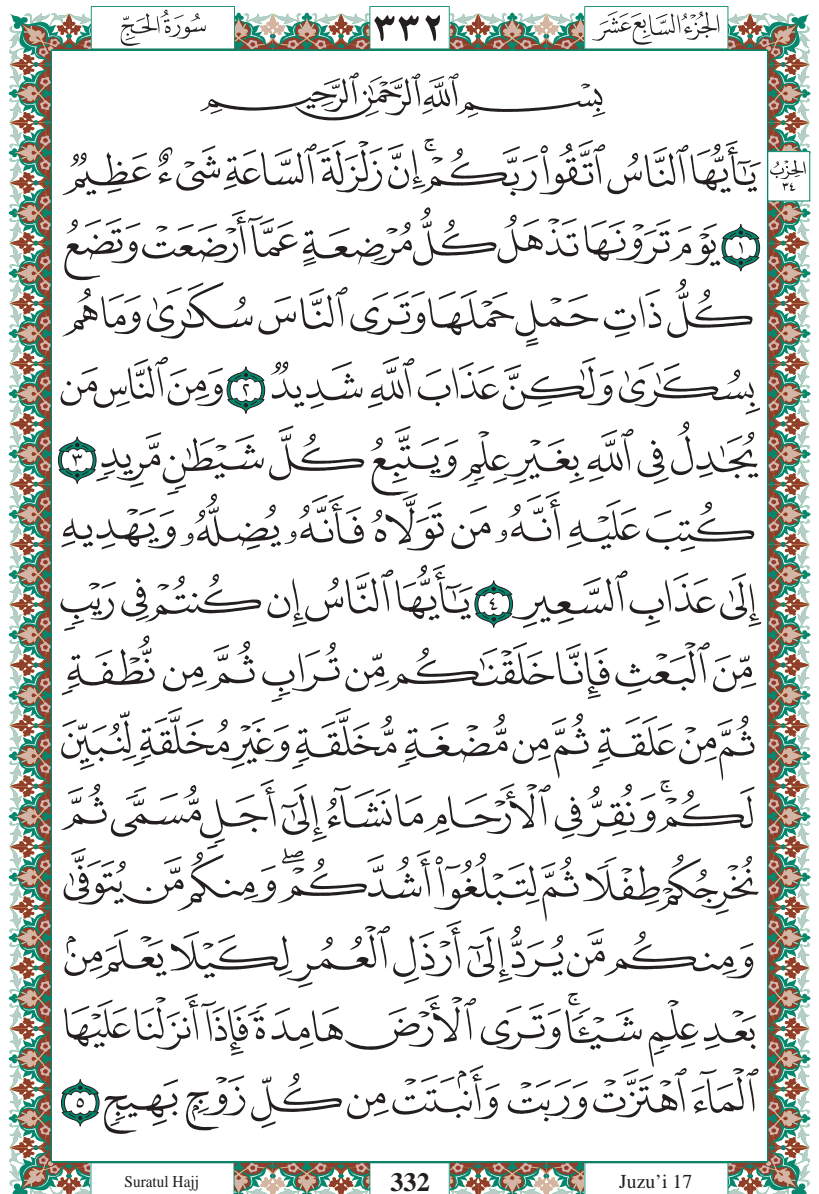 الجُزْءُ السَّابِعَ عَشَرَ ٣٣٢ سُورَةُ الحَجِّ
بِسْمِ ٱللَّهِ ٱلرَّحْمَٰنِ ٱلرَّحِيمِ
يَٰٓأَيُّهَا ٱلنَّاسُ ٱتَّقُوا۟ رَبَّكُمْ ۚ إِنَّ زَلْزَلَةَ ٱلسَّاعَةِ شَىْءٌ عَظِيمٌ
الحِزْبُ
٣٤
١ يَوْمَ تَرَوْنَهَا تَذْهَلُ كُلُّ مُرْضِعَةٍ عَمَّآ أَرْضَعَتْ وَتَضَعُ
كُلُّ ذَاتِ حَمْلٍ حَمْلَهَا وَتَرَى ٱلنَّاسَ سُكَٰرَىٰ وَمَا هُم
بِسُكَٰرَىٰ وَلَٰكِنَّ عَذَابَ ٱللَّهِ شَدِيدٌ ٢ وَمِنَ ٱلنَّاسِ مَن
يُجَٰدِلُ فِى ٱللَّهِ بِغَيْرِ عِلْمٍ وَيَتَّبِعُ كُلَّ شَيْطَٰنٍ مَّرِيدٍ ٣
كُتِبَ عَلَيْهِ أَنَّهُۥ مَن تَوَلَّاهُ فَأَنَّهُۥ يُضِلُّهُۥ وَيَهْدِيهِ
إِلَىٰ عَذَابِ ٱلسَّعِيرِ ٤ يَٰٓأَيُّهَا ٱلنَّاسُ إِن كُنتُمْ فِى رَيْبٍ
مِّنَ ٱلْبَعْثِ فَإِنَّا خَلَقْنَٰكُم مِّن تُرَابٍ ثُمَّ مِن نُّطْفَةٍ
ثُمَّ مِنْ عَلَقَةٍ ثُمَّ مِن مُّضْغَةٍ مُّخَلَّقَةٍ وَغَيْرِ مُخَلَّقَةٍ لِّنُبَيِّنَ
لَكُمْ ۚ وَنُقِرُّ فِى ٱلْأَرْحَامِ مَا نَشَآءُ إِلَىٰٓ أَجَلٍ مُّسَمًّى ثُمَّ
نُخْرِجُكُمْ طِفْلًا ثُمَّ لِتَبْلُغُوٓا۟ أَشُدَّكُمْ ۖ وَمِنكُم مَّن يُتَوَفَّىٰ
وَمِنكُم مَّن يُرَدُّ إِلَىٰٓ أَرْذَلِ ٱلْعُمُرِ لِكَيْلَا يَعْلَمَ مِنۢ
بَعْدِ عِلْمٍ شَيْـًٔا ۚ وَتَرَى ٱلْأَرْضَ هَامِدَةً فَإِذَآ أَنزَلْنَا عَلَيْهَا
ٱلْمَآءَ ٱهْتَزَّتْ وَرَبَتْ وَأَنۢبَتَتْ مِن كُلِّ زَوْجٍۭ بَهِيجٍ ٥
Suratul Hajj 332 Juzu'i 17